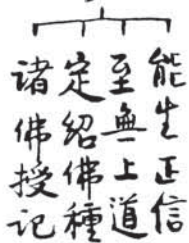 能生正信
至無上道
定紹佛種
諸佛授記